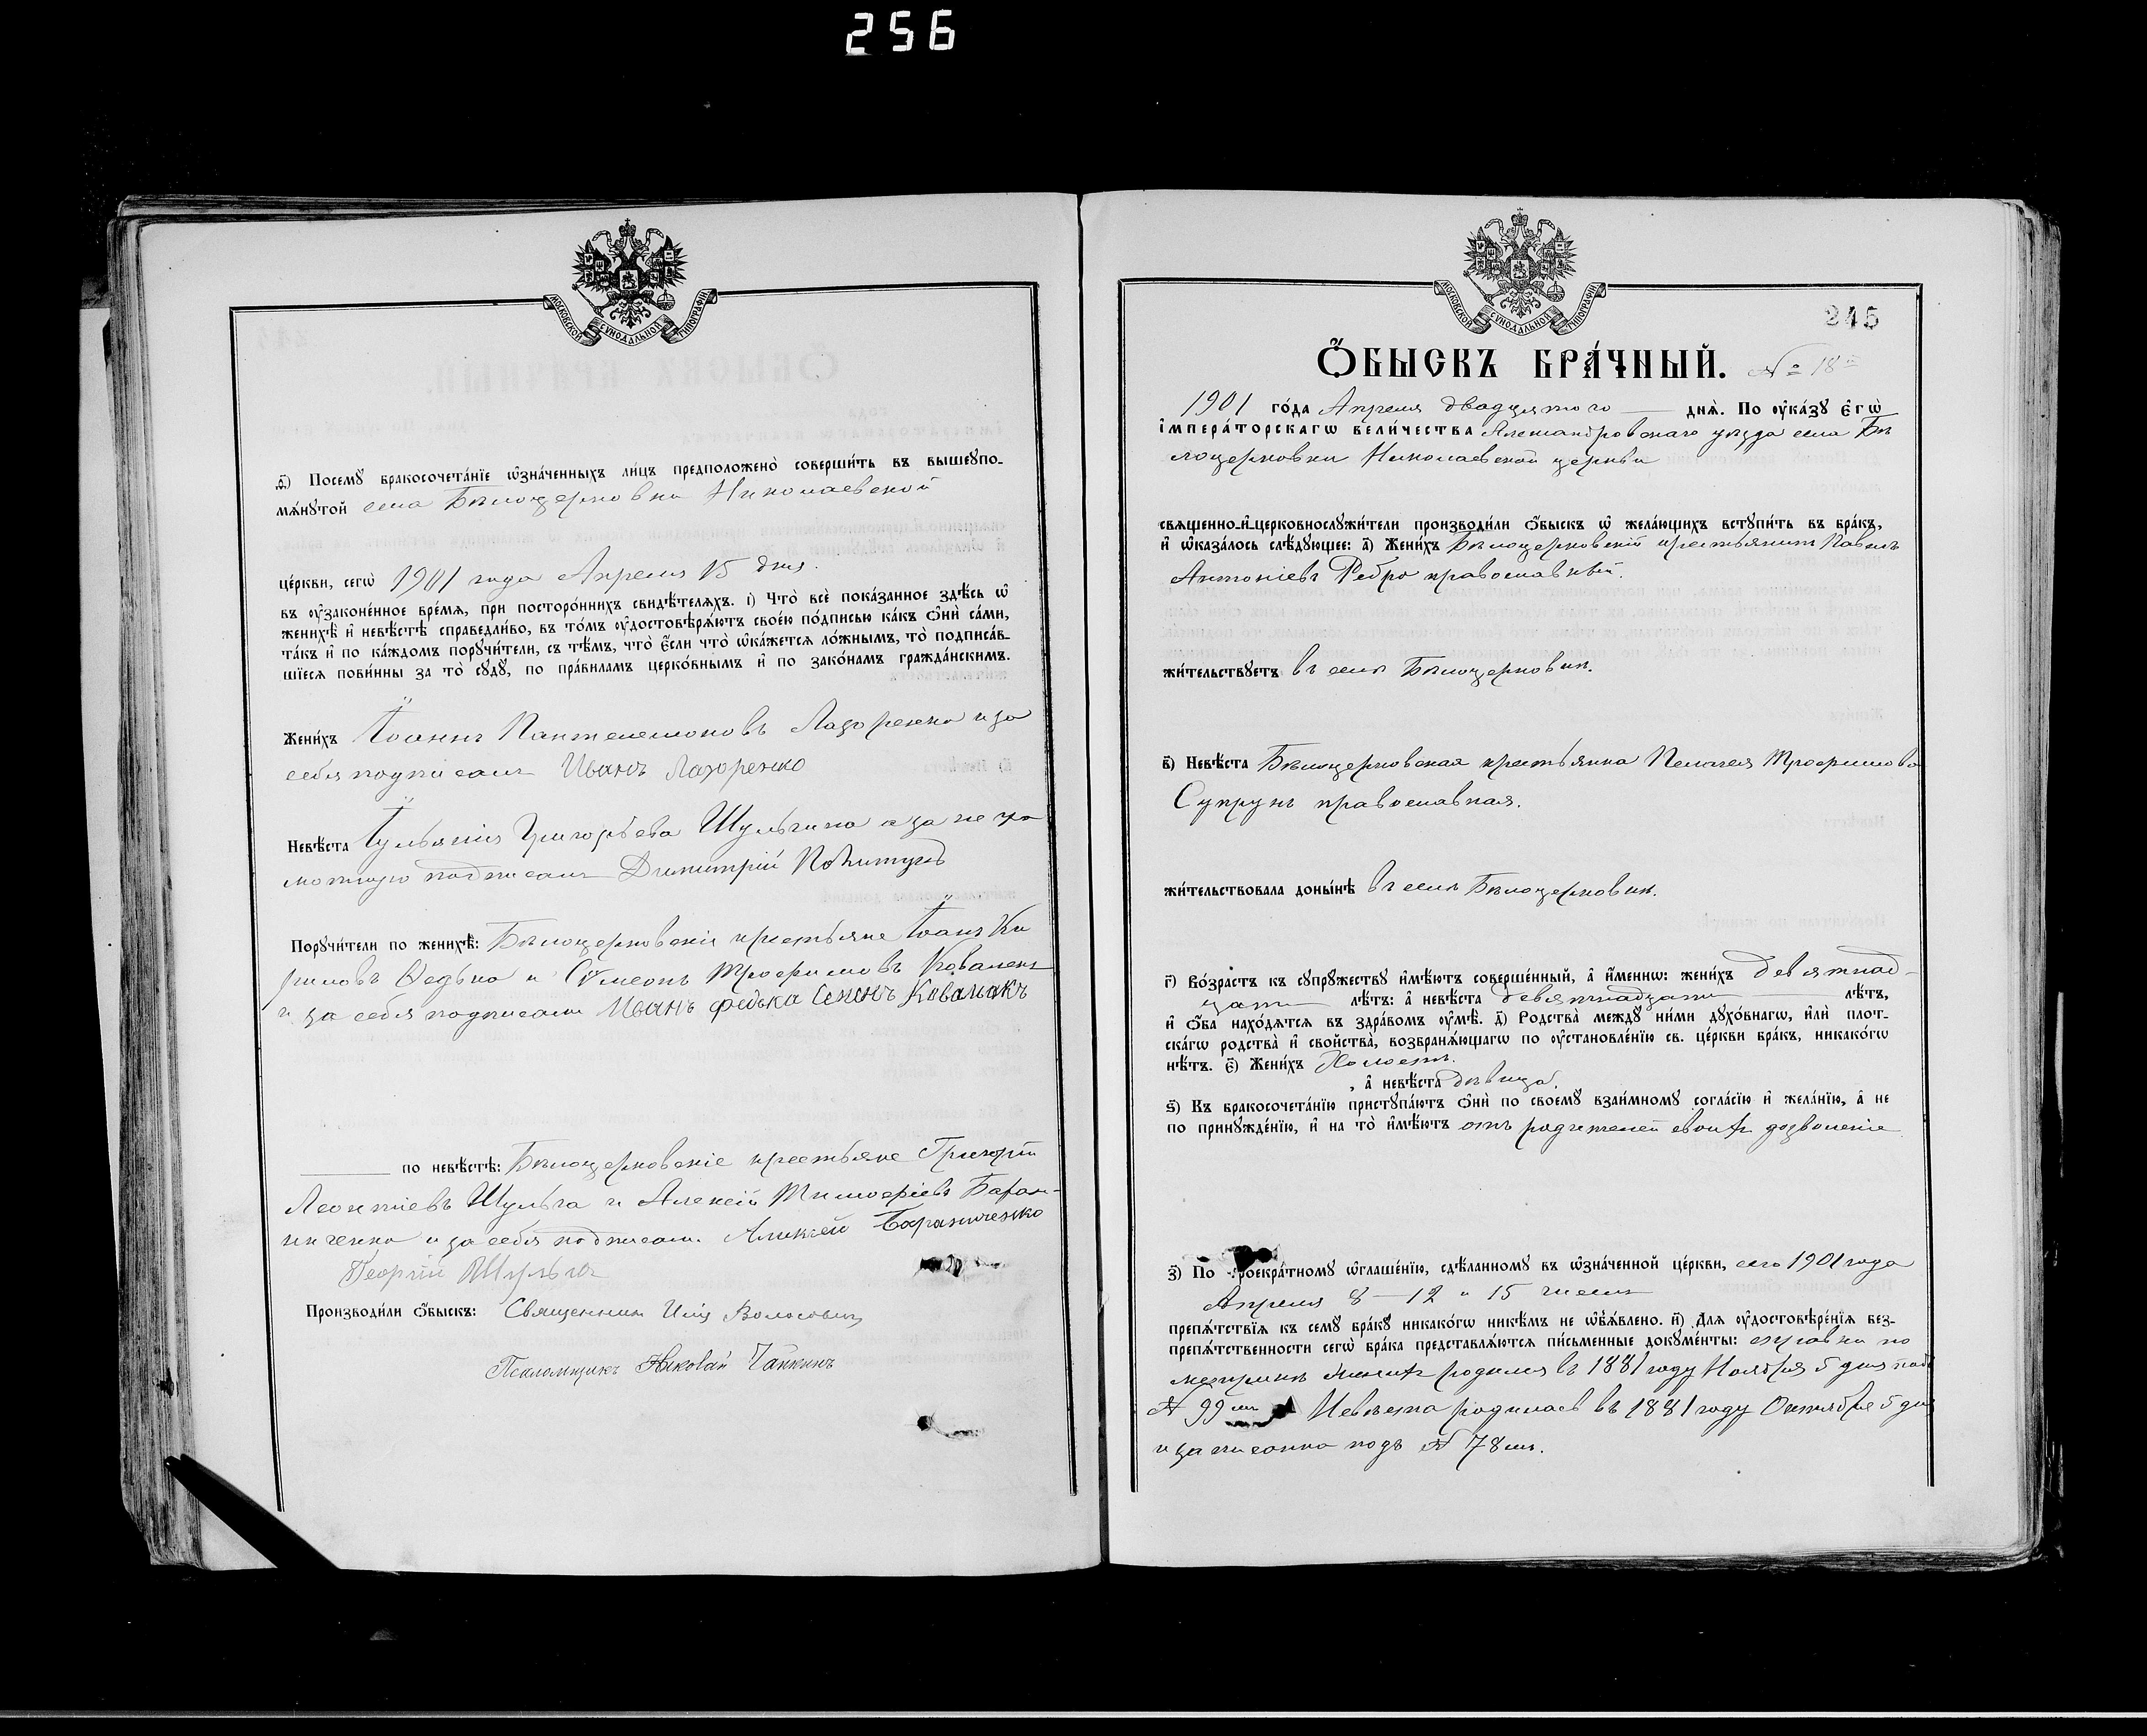 256
МОСКОВСКОЙ СѴНОДАЛЬНОЙ ТИПОГРАФІИ
ѳ҃) Посемꙋ бракосочета́нїе ѡ҆зна́ченныхъ ли́цъ предположено̀ соверши́ть въ вышеꙋпо-
мѧ́нꙋтой села Бѣлоцерковки Николаевской
це́ркви, сегѡ̀ 1901 года Апреля 15 дня.
въ ᲂу҆зако́ненное вре́мѧ, при посторо́ннихъ свидѣ́телѧхъ. і҃) Что̀ всѐ пока́занное здѣ́сь ѡ҆
женихѣ̀ и҆ невѣ́стѣ справедли́во, въ то́мъ ᲂу҆достовѣрѧ́ютъ свое́ю по́дписью ка́къ ѻ҆нѝ са́ми,
та́къ и҆ по ка́ждомъ порꙋчи́тели, съ тѣ́мъ, что̀ є҆́сли что̀ ѡ҆ка́жетсѧ ло́жнымъ, то̀ подписа́в-
шїесѧ пови́нны за то̀ сꙋдꙋ̀, по пра́виламъ церко́внымъ и҆ по зако́намъ гражда́нскимъ.
Жени́хъ Іоаннъ Пантелеимоновъ Лазоренко и за
себя подписалъ Иванъ Лазоренко
Невѣ́ста Іуліанія Григорьева Шульгина а за негра
мотную подписалъ Димитрій
Порꙋчи́тели по женихѣ̀: Бѣлоцерковскіе крестьяне Іоанъ Ки
риловъ Ѳедько и Сѵмеонъ Трофимовъ Ковалекъ
и за себя подписали Иванъ федька Семенъ Ковалакъ
по невѣ́стѣ: Бѣлоцерковскіе крестьяне Григорій
Леонтіевъ Шульга и Алексій Тимофіевъ Баран-
ниченко и за себя подписали Аликсей Бараниченко
Георгій Шульга
Производи́ли ѻ҆́быскъ: Священникъ Илія Волосовичъ
Псаломщикъ Николай Чапкинъ
МОСКОВСКОЙ СѴНОДАЛЬНОЙ ТИПОГРАФІИ
245
Ѻ҆́БЫСКЪ БРА́ЧНЫЙ. № 18й
1901 го́да Апреля двадцятого днѧ̀. По ᲂу҆ка́зꙋ Є҆гѡ̀
і҆мпера́торскагѡ вели́чества Александровскаго уѣзда села Бѣ
лоцерковки Николаевской церкви
свѧще́нно-и҆-церковнослꙋжи́тели производи́ли ѻ҆́быскъ ѡ҆ жела́ющихъ встꙋпи́ть въ бра́къ,
и҆ ѡ҆каза́лось слѣ́дꙋющее: а҃) Жени́хъ Бѣлоцерковскій крестьянинъ Павелъ
Антоніевъ Ребро православный.
жи́тельствꙋетъ въ селѣ Бѣлоцерковки.
в҃) Невѣ́ста Бѣлоцерковская крестьянка Пелагея Трофимова
Супрунъ православная.
жи́тельствовала доны́нѣ въ селѣ Бѣлоцерковки.
г҃) Во́зрастъ къ сꙋпрꙋ́жествꙋ и҆мѣ́ютъ соверше́нный, а҆ и҆́меннѡ: жени́хъ девятнад-
цати лѣ́тъ: а҆ невѣ́ста девятнадцати лѣ́тъ,
и҆ ѻ҆́ба нахо́дѧтсѧ въ здра́вомъ ᲂу҆мѣ̀. д҃) Родства̀ междꙋ̀ ни́ми дꙋхо́внагѡ, и҆лѝ плот-
ска́гѡ родства̀ и҆ сво́йства, возбранѧ́ющагѡ по ᲂу҆становле́нїю св. це́ркви бра́къ, никако́гѡ
нѣ́тъ. є҃) Жени́хъ Холостъ.
, а҆ невѣ́ста дѣвица.
ѕ҃) Къ бракосочета́нїю пристꙋпа́ютъ ѻ҆нѝ по своемꙋ̀ взаи́мномꙋ согла́сїю и҆ жела́нїю, а҆ не
по принꙋжде́нїю, и҆ на то̀ и҆мѣ́ютъ отъ родителей своихъ дозволеніе
з҃) По троекра́тномꙋ ѡ҆глаше́нїю, сдѣ́ланномꙋ въ ѡ҆зна́ченной це́ркви, сего 1901 года
Апреля 8 — 12 и 15 числъ
препѧ́тствїѧ къ семꙋ̀ бра́кꙋ никако́гѡ никѣ́мъ не ѡ҆б̾ѧ́влено. и҃) Длѧ ᲂу҆достовѣре́нїѧ без-
препѧ́тственности сегѡ̀ бра́ка представлѧ́ютсѧ пи́сьменные докꙋме́нты: справки по
метрикѣ Женихъ родился въ 1881 году Ноября 5 дня подъ
№ 99мъ Невѣста родилась въ 1881 году Октября 5 дня
и записанна подъ № 78мъ.